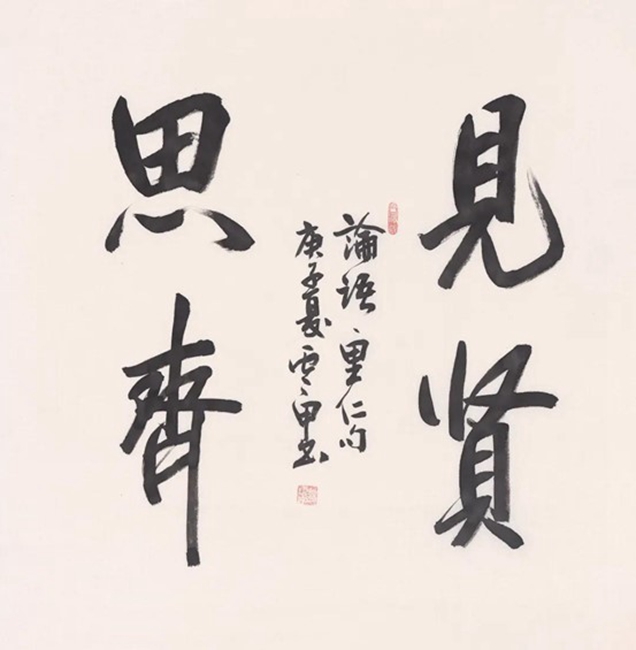 見賢
思齊
論語里仁句
庚子夏雲甲书